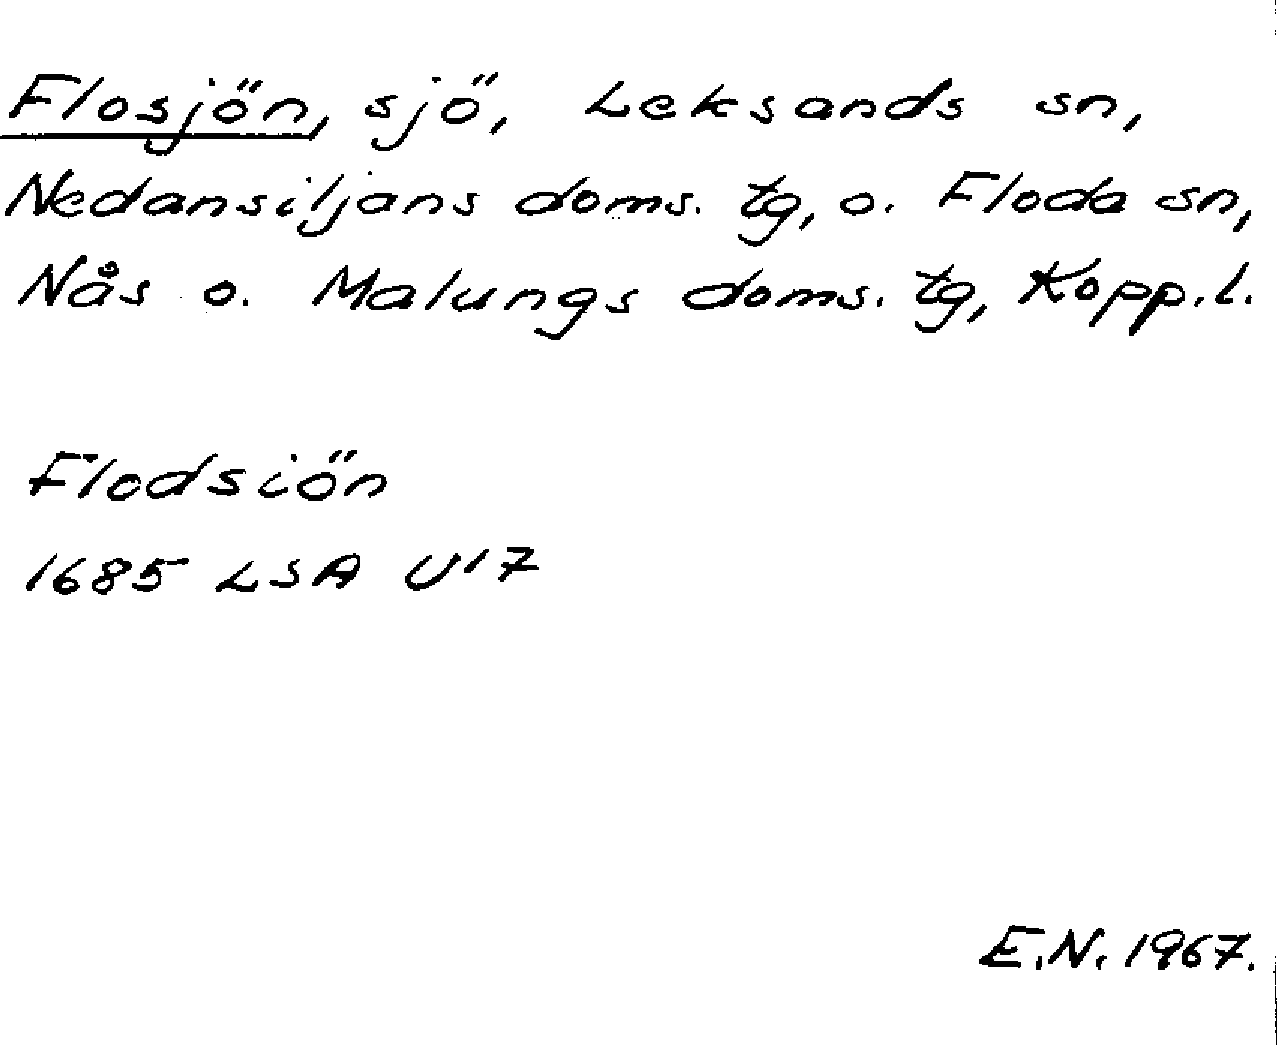 Flosjön, sjö, Leksands sn,
Nedansiljans doms. tg, o. Floda sn,
Nås o. Malungs doms. tg, Kopp.l.
Flodsiön
1685 LSA U17
E.N. 1967.